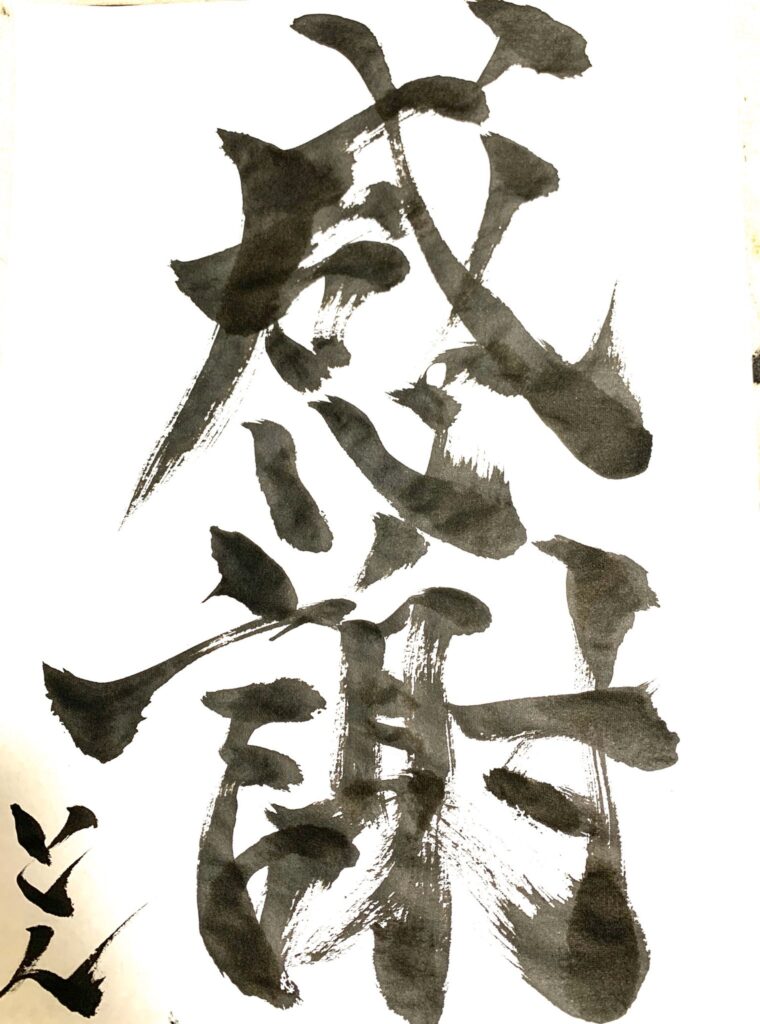 感謝
とん